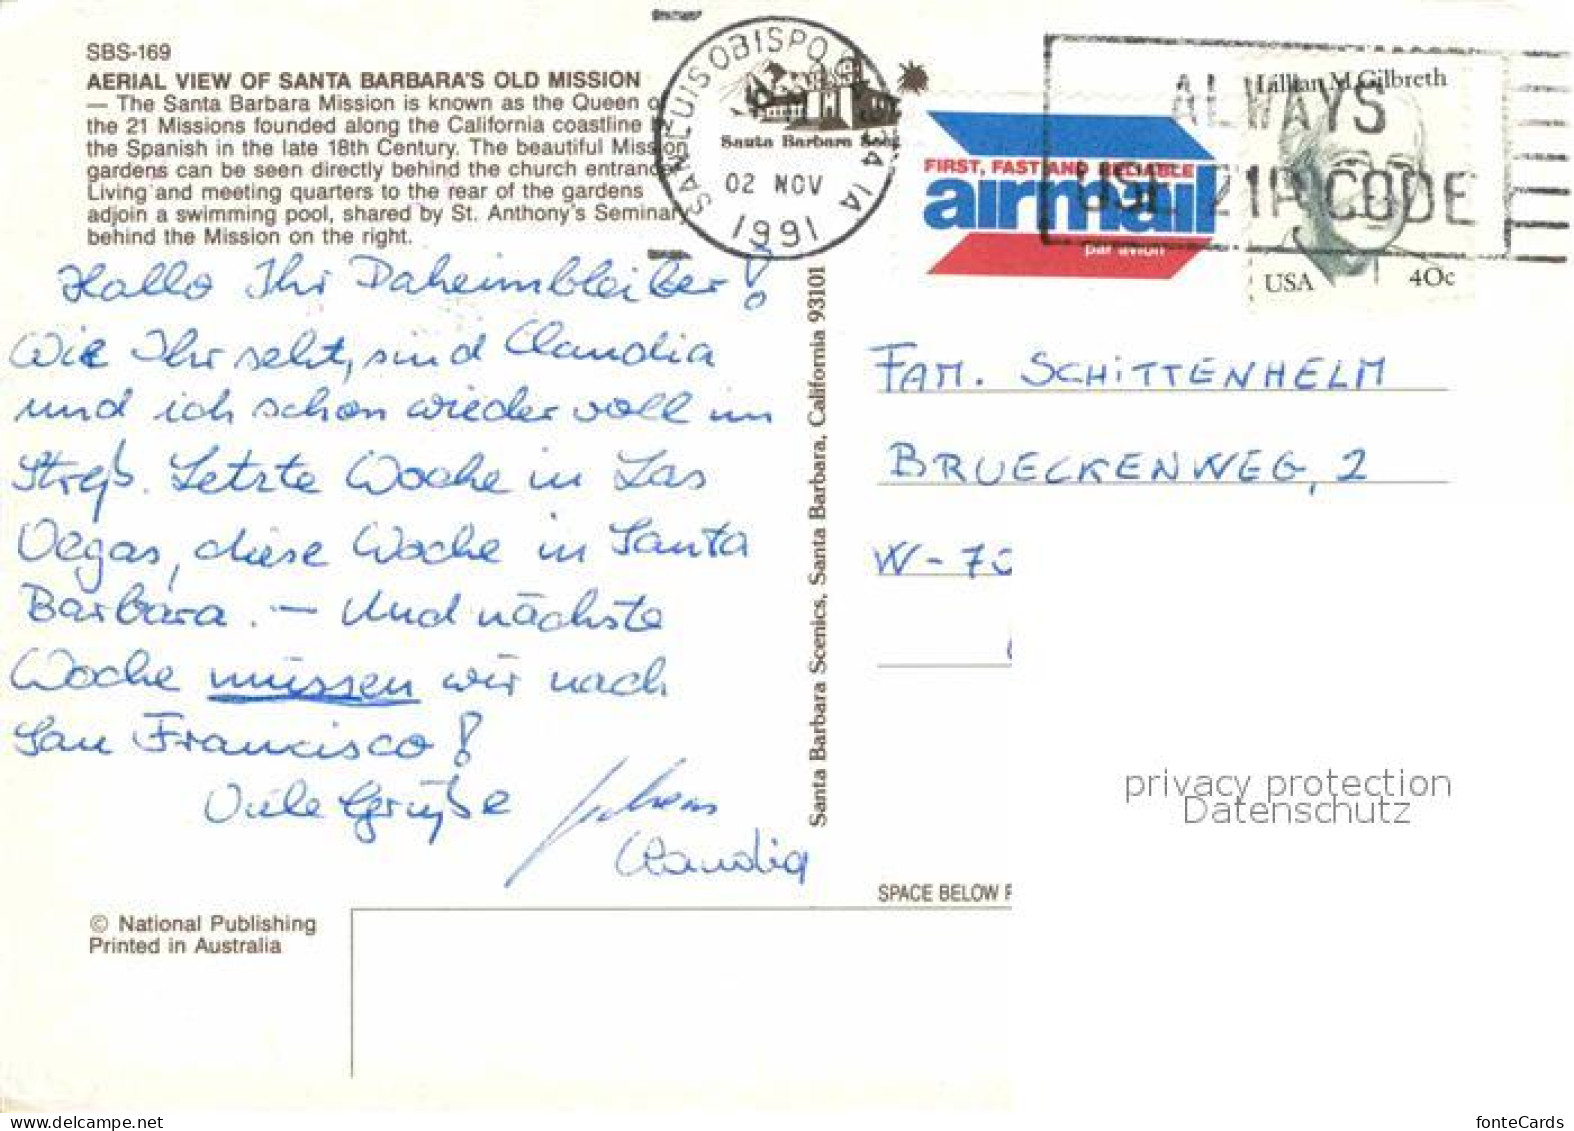 SBS-169
AERIAL VIEW OF SANTA BARBARA'S OLD MISSION
— The Santa Barbara Mission is known as the Queen of
the 21 Missions founded along the California coastline
the Spanish in the late 18th Century. The beautiful Mission
gardens can be seen directly behind the church entrance
Living and meeting quarters to the rear of the gardens
adjoin a swimming pool, shared by St. Anthony's Seminary
behind the Mission on the right.
Hallo Ihr Daheimbleiber!
Wie Ihr seht, sind Claudia
und ich schon wieder voll im
Streß. Letzte Woche in Las
Vegas, diese Woche in Santa
Barbara. — Und nächste
Woche müssen wir nach
San Francisco!
Viele Grüße
Claudia
© National Publishing
Printed in Australia
Santa Barbara Scenics, Santa Barbara, California 93101
SAN LUIS OBISPO
Santa Barbara
02 NOV
1991
FIRST, FAST AND RELIABLE
airmail
par avion
ALWAYS
USE ZIP CODE
Lillian M. Gilbreth
USA 40c
FAM. SCHITTENHELM
BRUECKENWEG, 2
W-75
privacy protection
Datenschutz
SPACE BELOW
www.delcampe.net
fonteCards